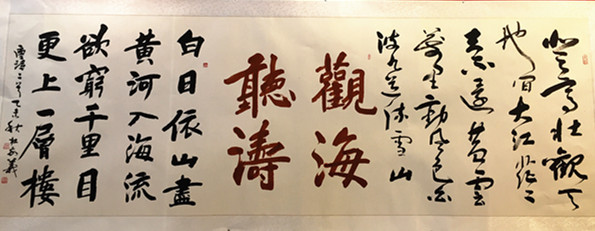 登高壯觀天
地间大江茫々
去不還黄雲
萬里動風色白
波九道流雪山
觀海
聽濤
白日依山盡
黄河入海流
欲窮千里目
更上一層樓
唐詩二首 乙未秋